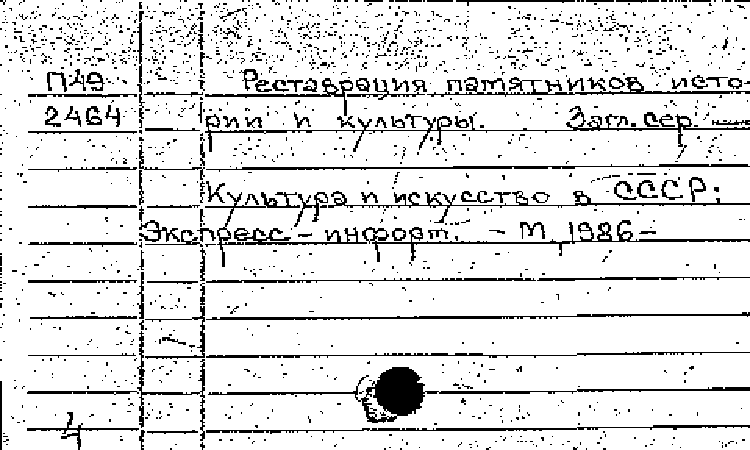 П49 Реставрация памятников исто-
2464 рии и культуры. Загл. сер.
Культура и искусство в СССР:
Экспресс-информ. - М, 1986-
4